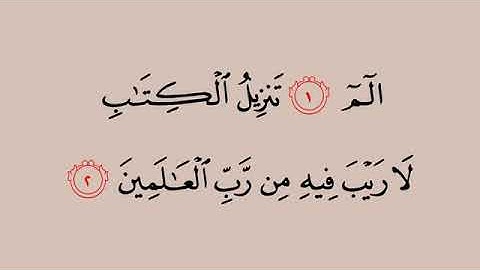 الٓمٓ ١ تَنزِيلُ ٱلْكِتَٰبِ
لَا رَيْبَ فِيهِ مِن رَّبِّ ٱلْعَٰلَمِينَ ٢